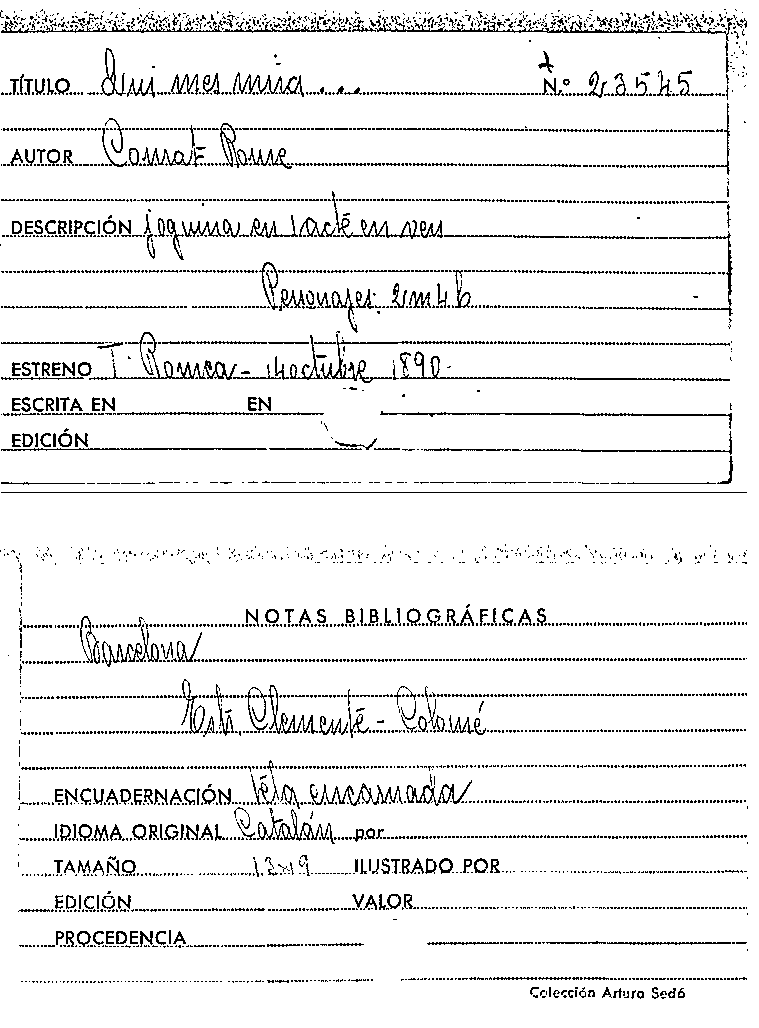 TÍTULO Qui mes mira...
N.º 23545
AUTOR Conrat Roure
DESCRIPCIÓN joguina en 1 acte en vers
Personajes: 2 m 4 h
ESTRENO T. Romea - 14 octubre 1890.
ESCRITA EN EN
EDICIÓN
NOTAS BIBLIOGRÁFICAS
Barcelona
Est. Clemente - Colomé
ENCUADERNACIÓN tela encarnada
IDIOMA ORIGINAL Catalán por
TAMAÑO 13x19 ILUSTRADO POR
EDICIÓN VALOR
PROCEDENCIA
Colección Arturo Sedó